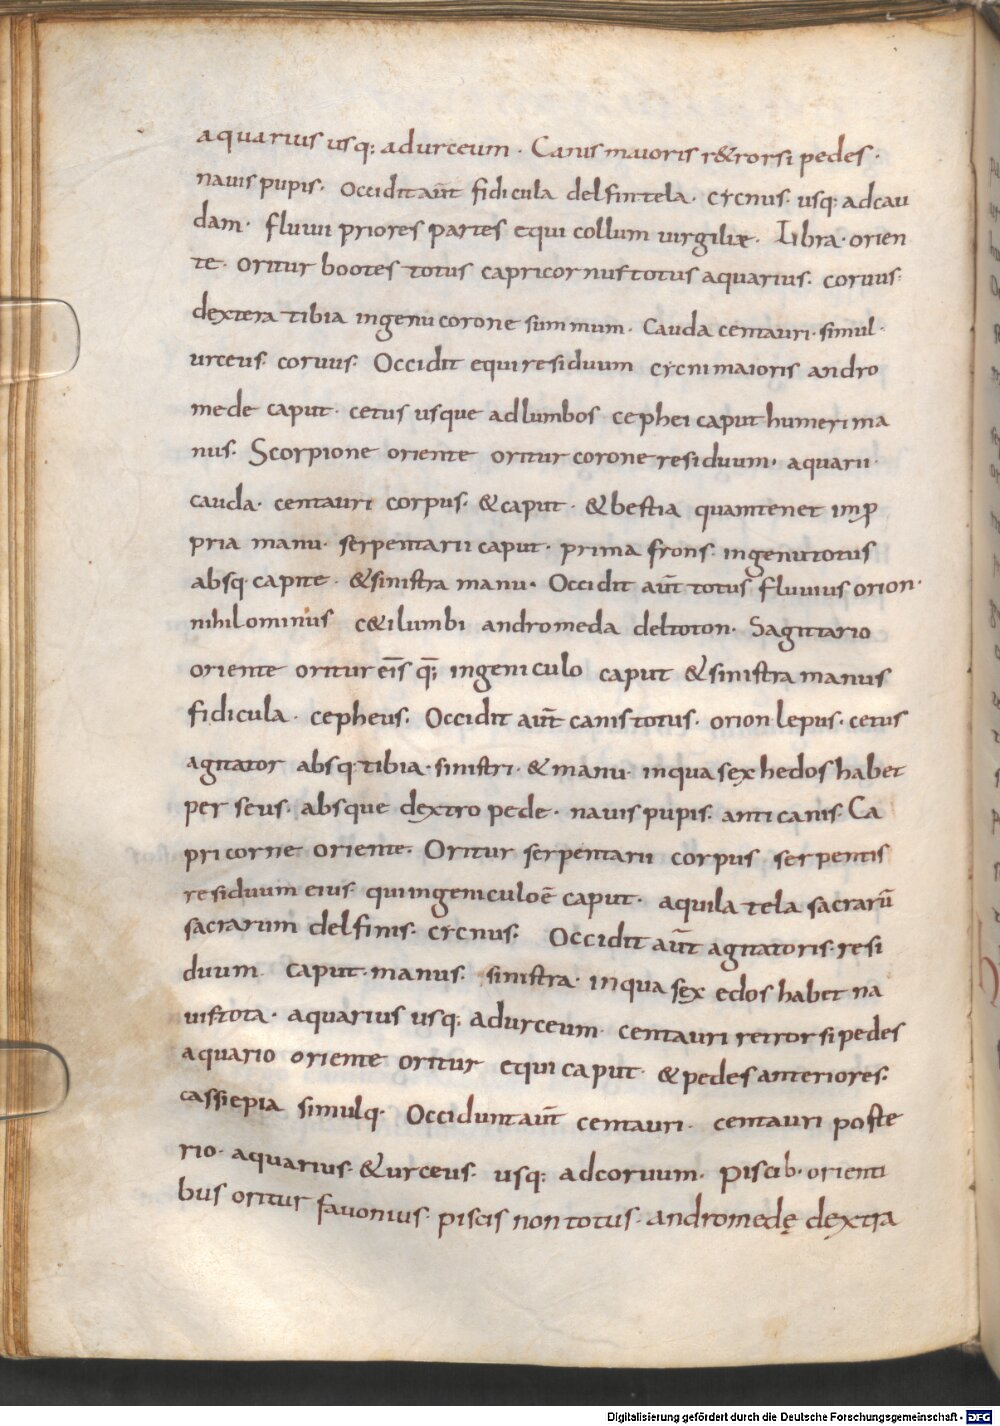 aquarius usq; adurceum · Canis maioris r&rorsi pedes ·
nauis pupis · Occidit aut̄ fidicula delfin tela · cycnus · usq; adcau
dam · fluuii priores partes equi collum uirgiliæ · Libra · orien
te · oritur bootes totus capricornus totus aquarius · coruus ·
dextera tibia ingenu corone summum · Cauda centauri · simul ·
urceus · coruus · Occidit equi residuum cycni maioris andro
mede caput · cetus usque adlumbos cephei caput humeri ma
nus · Scorpione oriente oritur corone residuum · aquarii ·
cauda · centauri corpus · & caput · & bestia quam tenet imp
pria manu · serpentarii caput · prima frons · ingenu totus
absq· capite · & sinistra manu · Occidit aut̄ totus fluuius orion ·
nihilominus c&i lumbi andromeda deltoton · Sagittario
oriente oritur eis̄ q̄; ingeniculo caput & sinistra manus
fidicula · cepheus · Occidit aut̄ canis totus · orion lepus · cetus
agitator absq; tibia · sinistri · & manu · inqua sex hedos habet
perseus · absque dextro pede · nauis pupis · anticanis · Ca
pricorne oriente · Oritur serpentarii corpus serpentis
residuum eius qui ingeniculo ē caput · aquila tela sacrarū
sacrarum delfinis · cycnus · Occidit aut̄ agitatoris · resi
duum caput · manus · sinistra · inqua sex edos habet na
uis tota · aquarius usq; adurceum · centauri retrorsi pedes
aquario oriente oritur equi caput · & pedes anteriores ·
cassiepia simulq· Occidunt aut̄ centauri · centauri poste
rio · aquarius · & urceus · usq; adcoruum · piscib· orienti
bus oritur fauonius · piscis non totus · andromedę dextra
Digitalisierung gefördert durch die Deutsche Forschungsgemeinschaft - DFG